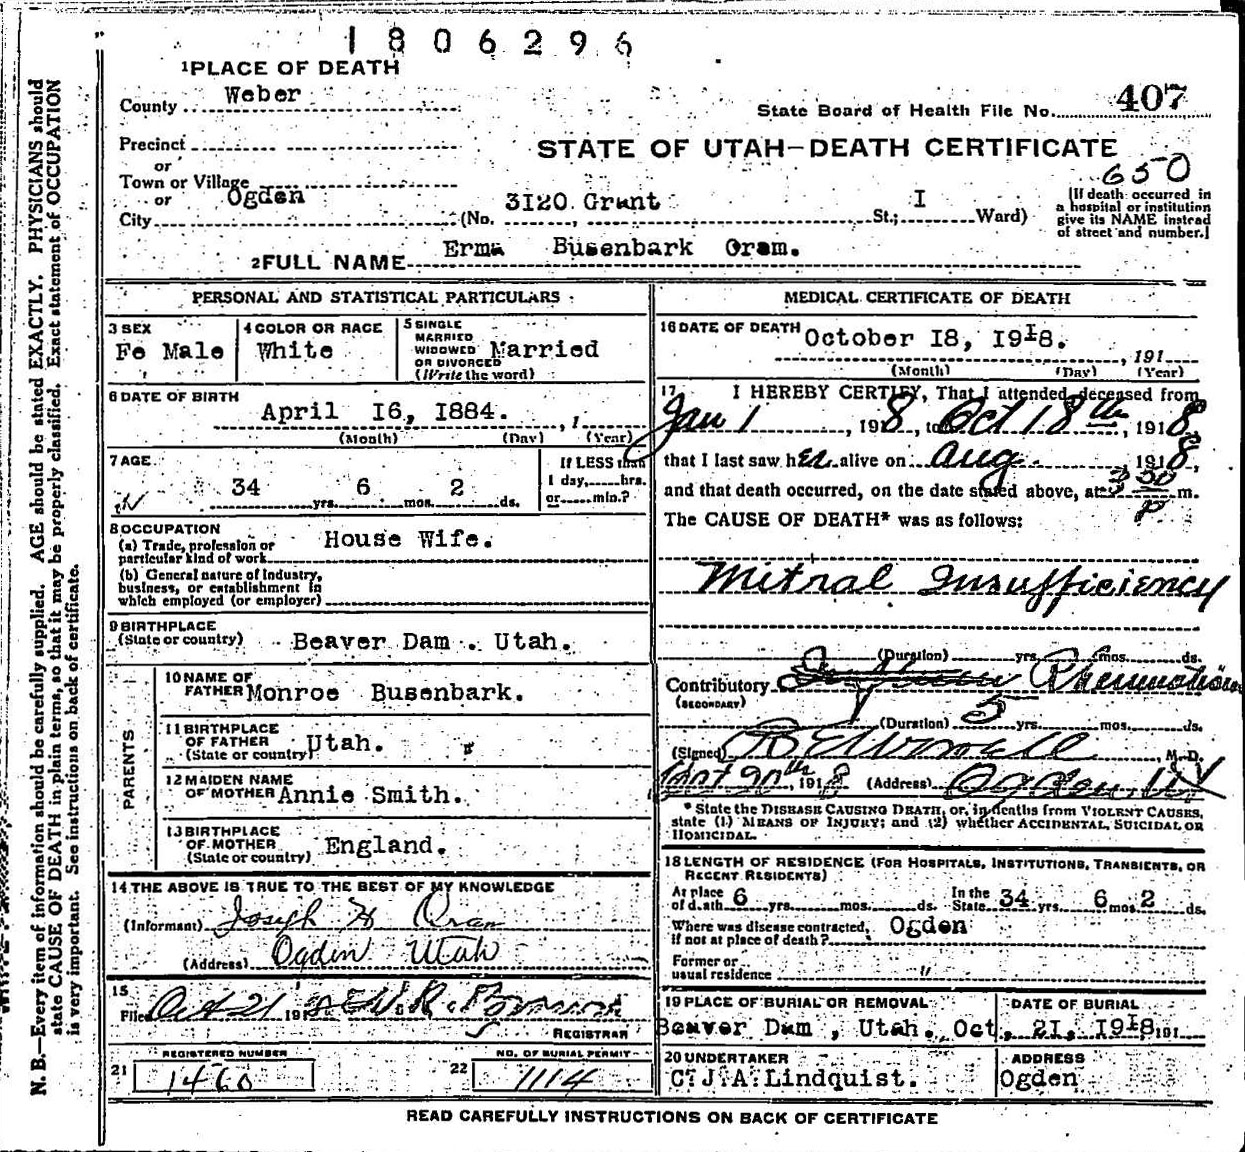 1806296
1 PLACE OF DEATH
County Weber
State Board of Health File No. 407
Precinct
or
STATE OF UTAH—DEATH CERTIFICATE
650
Town or Village
or
City Ogden (No. 3120 Grant St.; I Ward)
[If death occurred in
a hospital or institution
give its NAME instead
of street and number.]
2 FULL NAME Erma Busenbark Oram.
PERSONAL AND STATISTICAL PARTICULARS
3 SEX
Fe Male
4 COLOR OR RACE
White
5 SINGLE
MARRIED
WIDOWED
OR DIVORCED
(Write the word)
Married
6 DATE OF BIRTH
April 16, 1884. , 1
(Month) (Day) (Year)
7 AGE
34 yrs. 6 mos. 2 ds.
If LESS than
1 day, hrs.
or min.?
8 OCCUPATION
(a) Trade, profession or
particular kind of work House Wife.
(b) General nature of Industry,
business, or establishment in
which employed (or employer)
9 BIRTHPLACE
(State or country) Beaver Dam. Utah.
PARENTS
10 NAME OF
FATHER Monroe Busenbark.
11 BIRTHPLACE
OF FATHER
(State or country) Utah.
12 MAIDEN NAME
OF MOTHER Annie Smith.
13 BIRTHPLACE
OF MOTHER
(State or country) England.
14 THE ABOVE IS TRUE TO THE BEST OF MY KNOWLEDGE
(Informant) Joseph H Oram
(Address) Ogden Utah
15
Filed Oct 21 191
REGISTRAR
21 REGISTERED NUMBER
1460
22 NO. OF BURIAL PERMIT
1114
MEDICAL CERTIFICATE OF DEATH
16 DATE OF DEATH October 18, 1918.
, 191
(Month) (Day) (Year)
17 I HEREBY CERTIFY, That I attended deceased from
Jan 1 , 1918, to Oct 18th , 1918,
that I last saw her alive on Aug. , 1918,
and that death occurred, on the date stated above, at 3 30 P m.
The CAUSE OF DEATH* was as follows:
Mitral Insufficiency
(Duration) yrs. mos. ds.
Contributory Rheumatism
(SECONDARY)
(Duration) 5 yrs. mos. ds.
(Signed) , M. D.
Oct 20th, 1918 (Address) Ogden, Ut
* State the DISEASE CAUSING DEATH, or, in deaths from VIOLENT CAUSES,
state (1) MEANS OF INJURY; and (2) whether ACCIDENTAL, SUICIDAL OR
HOMICIDAL.
18 LENGTH OF RESIDENCE (FOR HOSPITALS, INSTITUTIONS, TRANSIENTS, OR
RECENT RESIDENTS)
At place
of death 6 yrs. mos. ds.
In the
State 34 yrs. 6 mos. 2 ds.
Where was disease contracted,
if not at place of death? Ogden
Former or
usual residence "
19 PLACE OF BURIAL OR REMOVAL
Beaver Dam, Utah.
DATE OF BURIAL
Oct. 21, 1918, 191
20 UNDERTAKER
C. J. A. Lindquist.
ADDRESS
Ogden
READ CAREFULLY INSTRUCTIONS ON BACK OF CERTIFICATE
N. B.—Every item of information should be carefully supplied. AGE should be stated EXACTLY. PHYSICIANS should
state CAUSE OF DEATH in plain terms, so that it may be properly classified. Exact statement of OCCUPATION
is very important. See instructions on back of certificate.